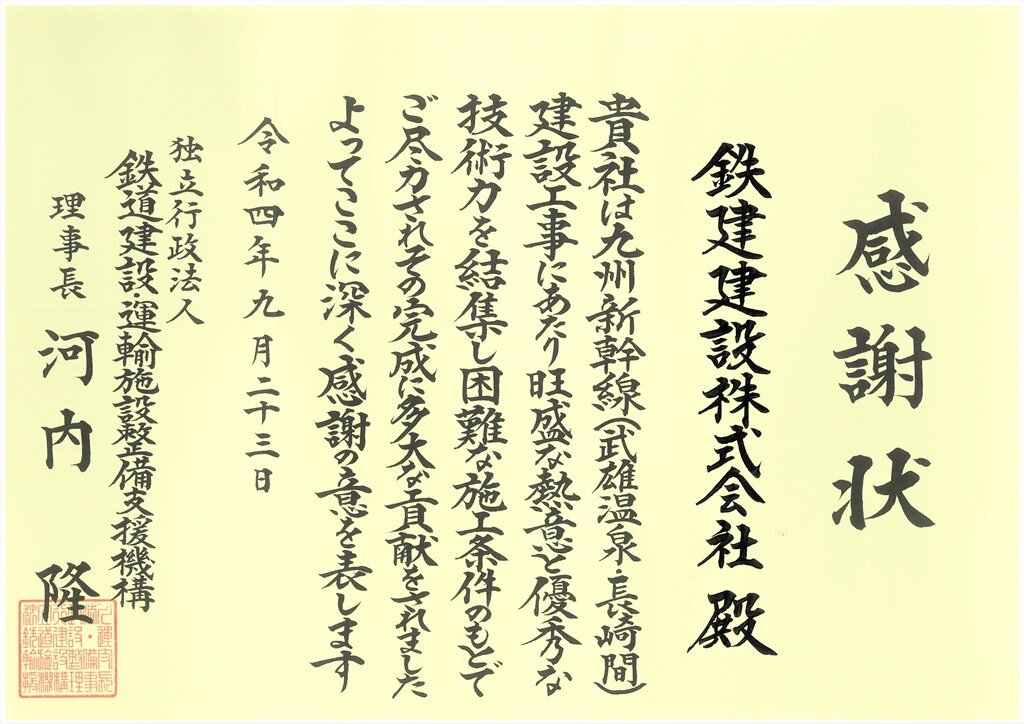 感謝状
鉄建建設株式会社 殿
貴社は九州新幹線(武雄温泉・長崎間)
建設工事にあたり旺盛な熱意と優秀な
技術力を結集し困難な施工条件のもとで
ご尽力されその完成に多大な貢献をされました
よってここに深く感謝の意を表します
令和四年九月二十三日
独立行政法人
鉄道建設・運輸施設整備支援機構
理事長 河内 隆